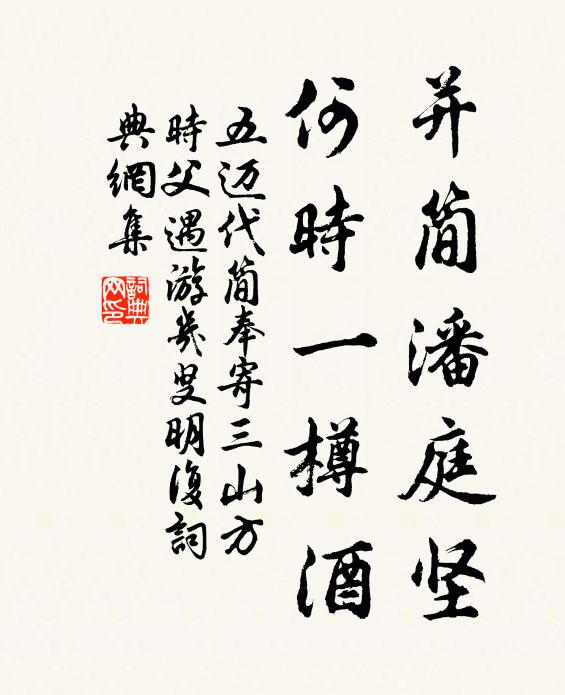 并简潘庭坚
何時一樽酒
五迈代简奉寄三山方
時父遇游幾叟明復詞
典網集
詞典网印